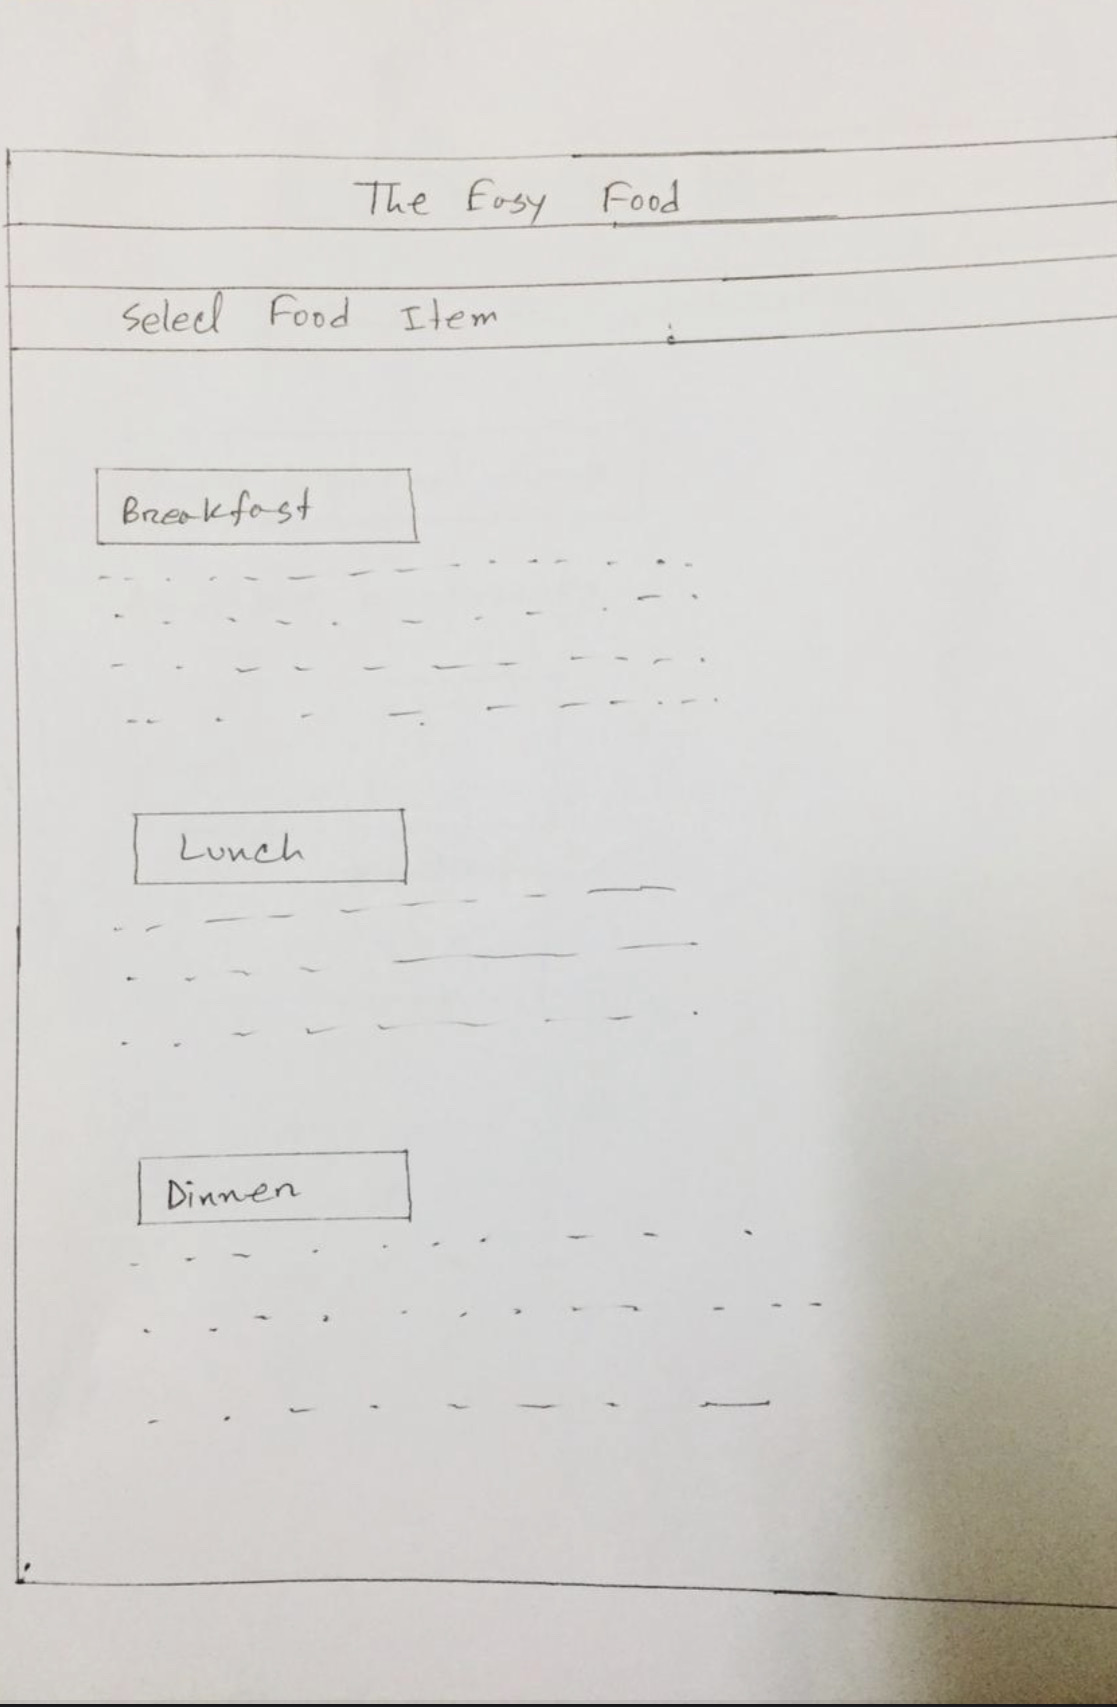 The Easy Food
Select Food Item
Breakfast
Lunch
Dinner